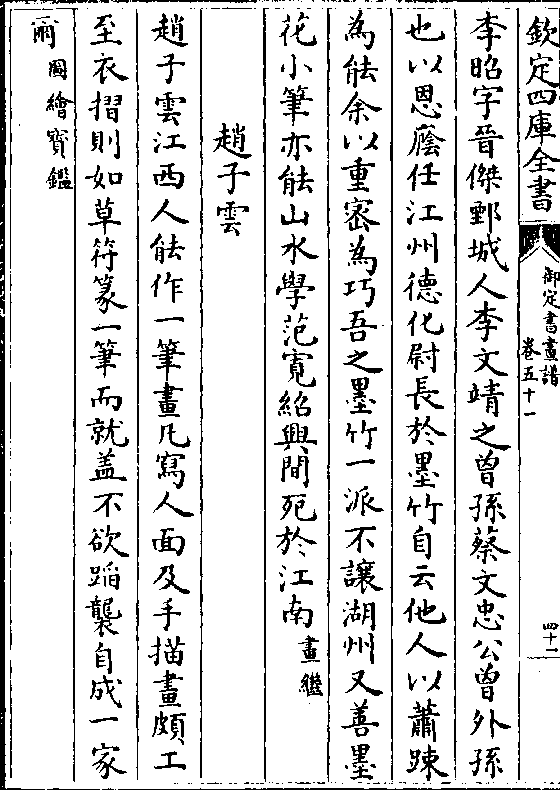 欽定四庫全書
御定書畫譜
卷五十一
四十二
李昭字晉傑鄄城人李文靖之曾孫蔡文忠公曾外孫
也以恩廕任江州德化尉長於墨竹自云他人以蕭踈
為能余以重宻為巧吾之墨竹一派不讓湖州又善墨
花小筆亦能山水學范寛紹興間死於江南畫繼
趙子雲
趙子雲江西人能作一筆畫凡寫人面及手描畫頗工
至衣摺則如草符篆一筆而就盖不欲蹈襲自成一家
爾圖繪寳鑑